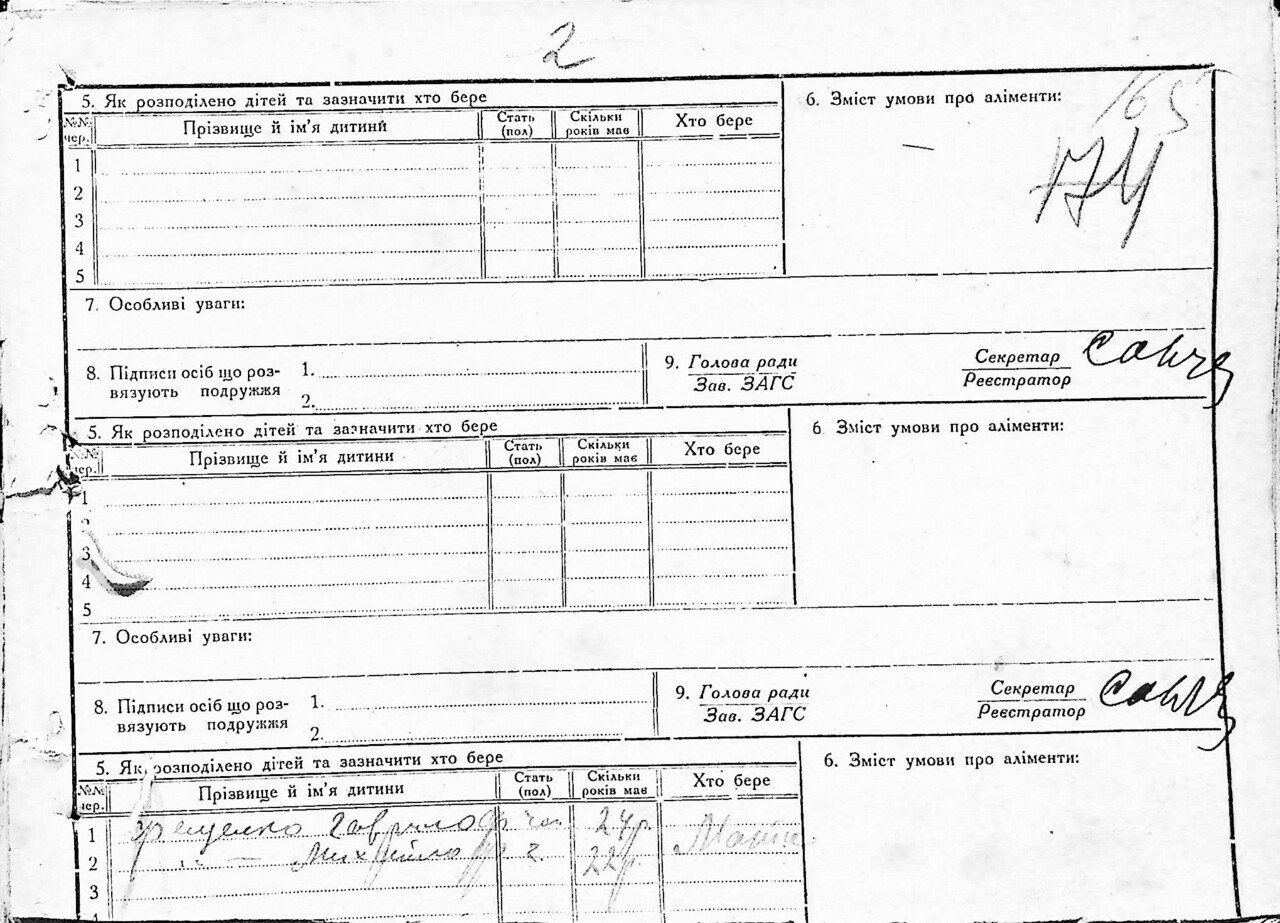 2
165
174
5. Як розподілено дітей та зазначити хто бере
6. Зміст умови про аліменти:
№№ чер.
Прізвище й ім'я дитини
Стать (пол)
Скільки років має
Хто бере
—
1
2
3
4
5
7. Особливі уваги:
8. Підписи осіб що роз-
вязують подружжя
1.
2.
9. Голова ради
Зав. ЗАГС
Секретар
Реєстратор
5. Як розподілено дітей та зазначити хто бере
6 Зміст умови про аліменти:
№№ чер.
Прізвище й ім'я дитини
Стать (пол)
Скільки років має
Хто бере
1
2
3
4
5
7. Особливі уваги:
8. Підписи осіб що роз-
вязують подружжя
1.
2.
9. Голова ради
Зав. ЗАГС
Секретар
Реєстратор
5. Як розподілено дітей та зазначити хто бере
6. Зміст умови про аліменти:
№№ чер.
Прізвище й ім'я дитини
Стать (пол)
Скільки років має
Хто бере
1 Гаврило 24р.
2 — Михайло ч. 22р.
3
4